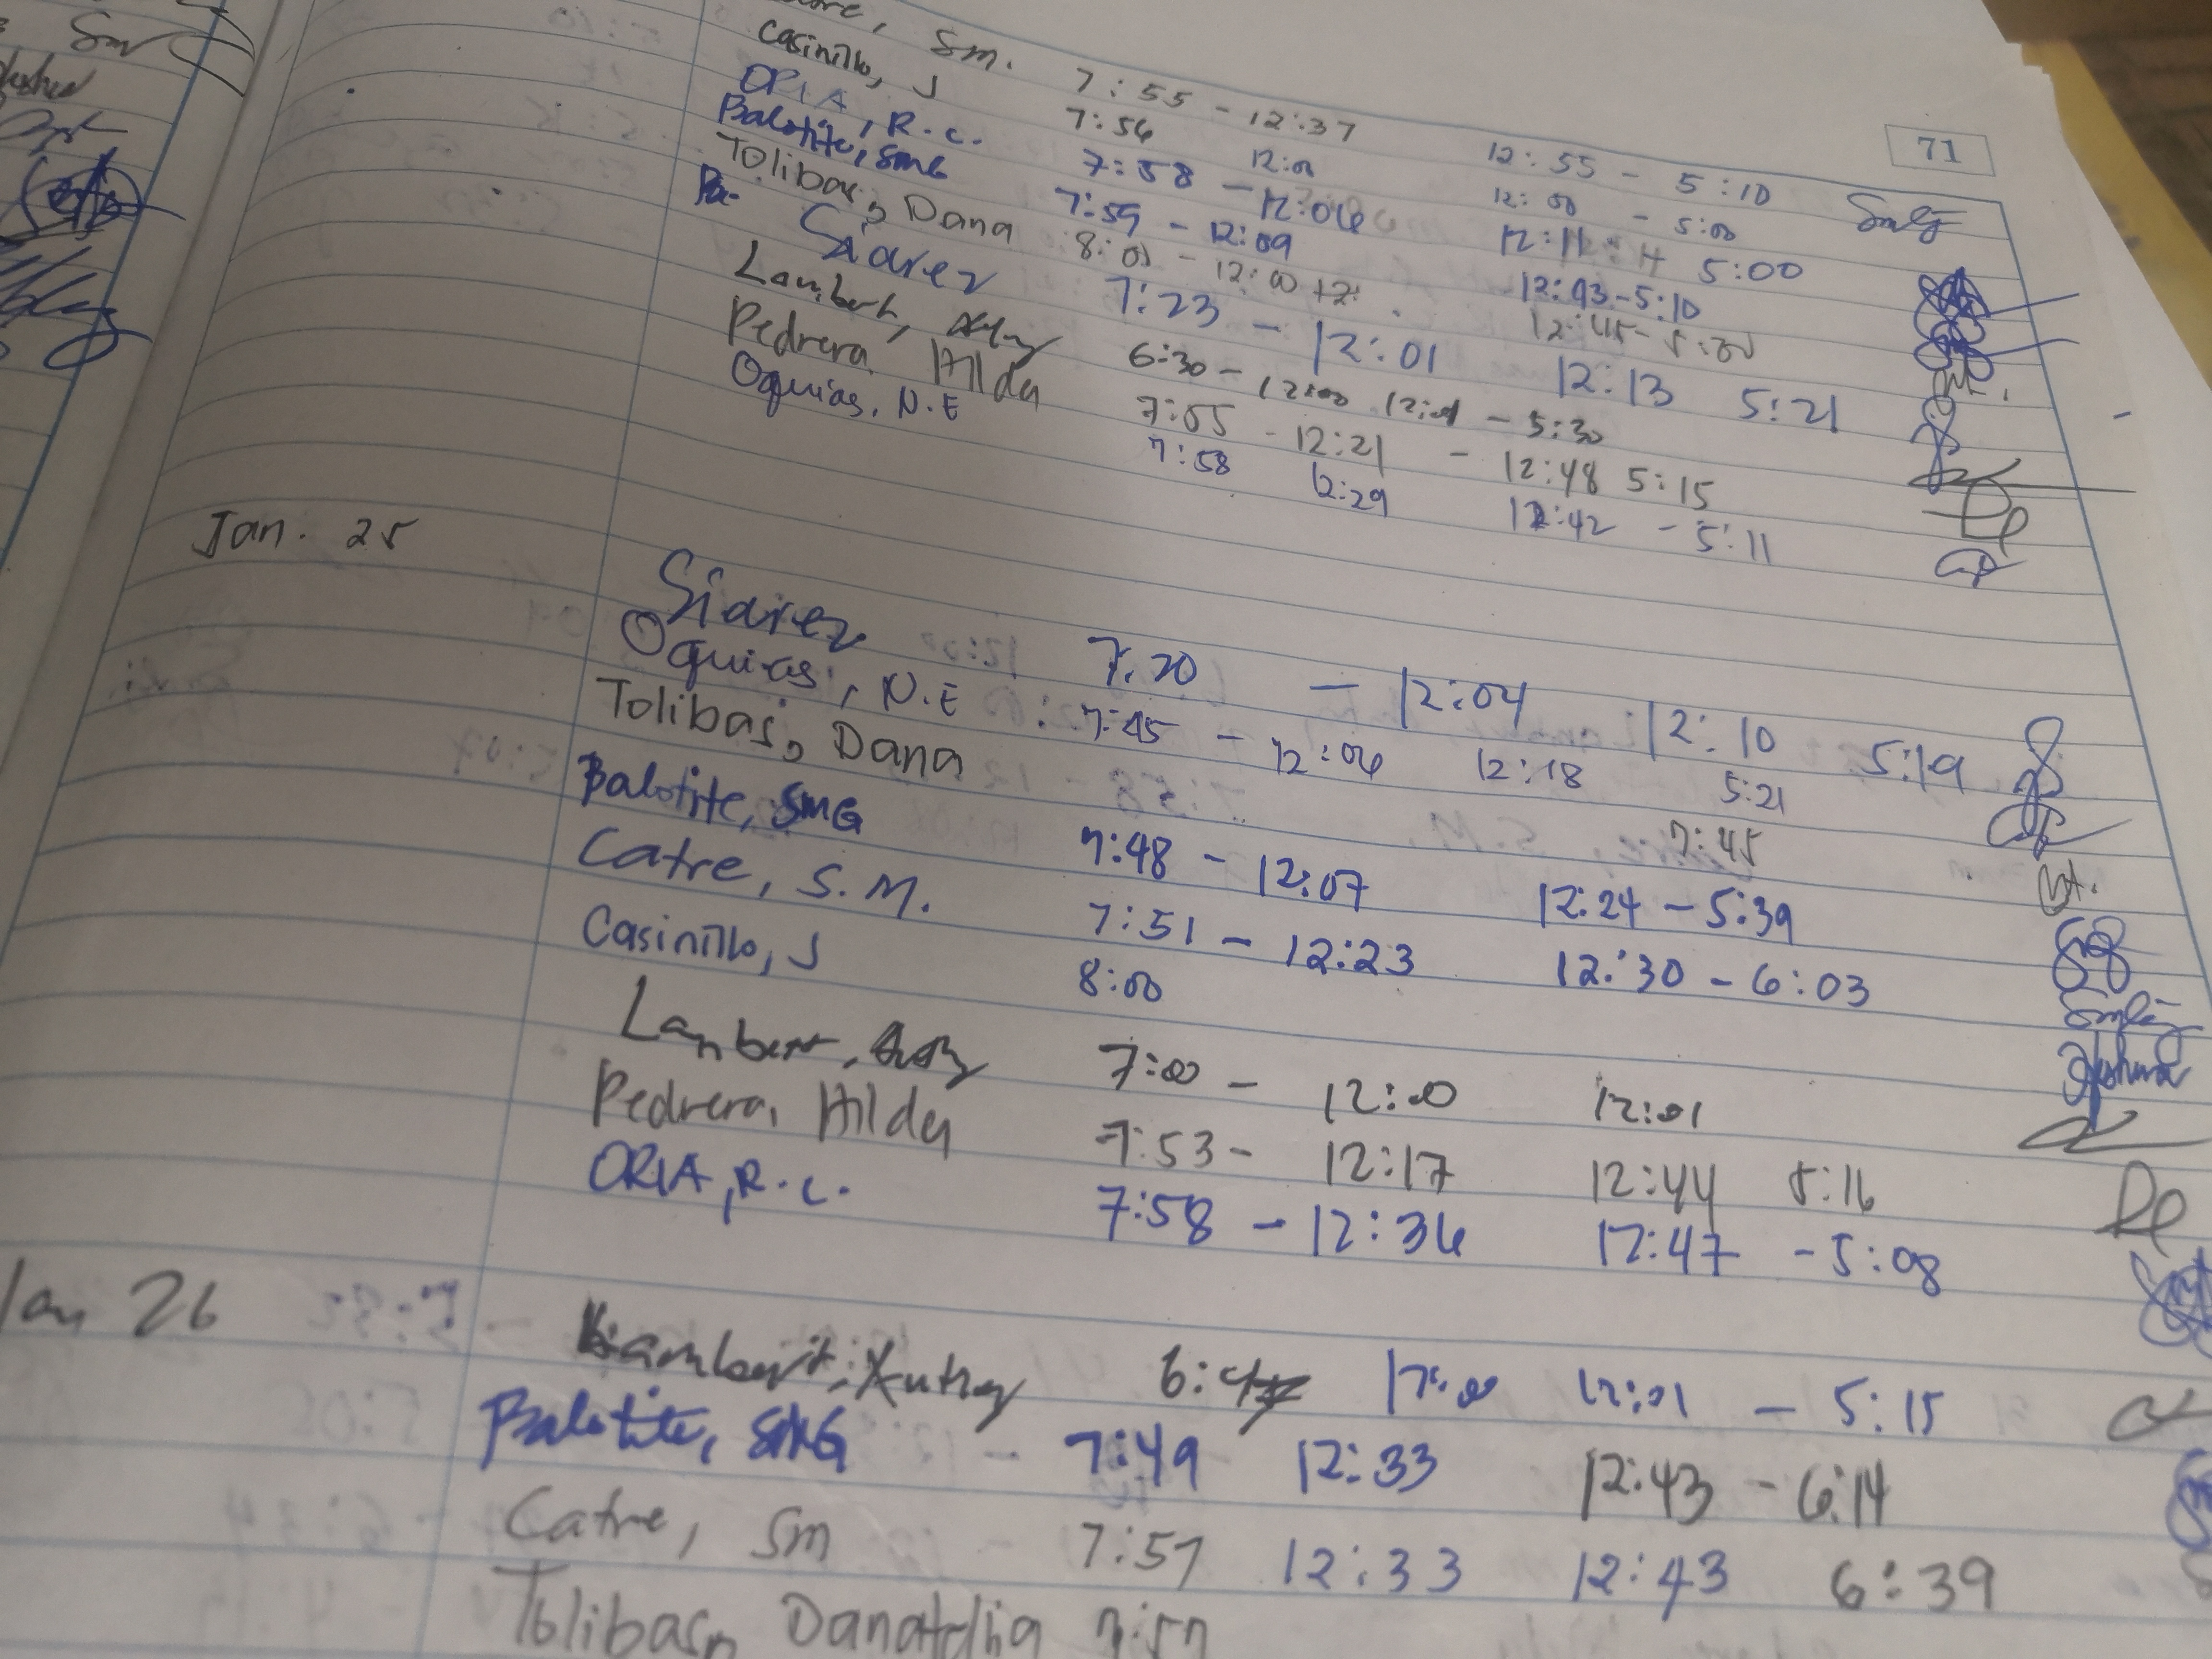 71
Sm. 7:55 - 12:37 12:55 - 5:10
Casinillo, J 7:56 12:00 12:00 - 5:00
ORIA, R.C. 7:58 - 12:06 12:11 5:00
Balotite, SMG 7:59 - 12:09 12:43 - 5:10
Tolibas, Dana 8:01 - 12:00 12:45 - 5:00
Siarez 7:23 - 12:01 12:13 5:21
Lambert, 6:30 - 12:00 12:01 - 5:30
Pedrera, Hilda 7:55 - 12:21 - 12:48 5:15
Oquias, N.E 7:58 12:29 12:42 - 5:11
Jan. 25
Siarez 7:20 - 12:04 12:10 5:19
Oquias, N.E 7:45 - 12:06 12:18 5:21
Tolibas, Dana 7:45
Balotite, SMG 7:48 - 12:07 12:24 - 5:39
Catre, S.M. 7:51 - 12:23 12:30 - 6:03
Casinillo, J 8:00
Lambert, 7:00 - 12:00 12:01
Pedrera, Hilda 7:53 - 12:17 12:44 5:16
ORIA, R.C. 7:58 - 12:36 12:47 - 5:08
Jan 26 Lambert, 12:00 12:01 - 5:15
Balotite, SMG 7:49 12:33 12:43 - 6:14
Catre, Sm 7:57 12:33 12:43 6:39
Tolibas, 7:57